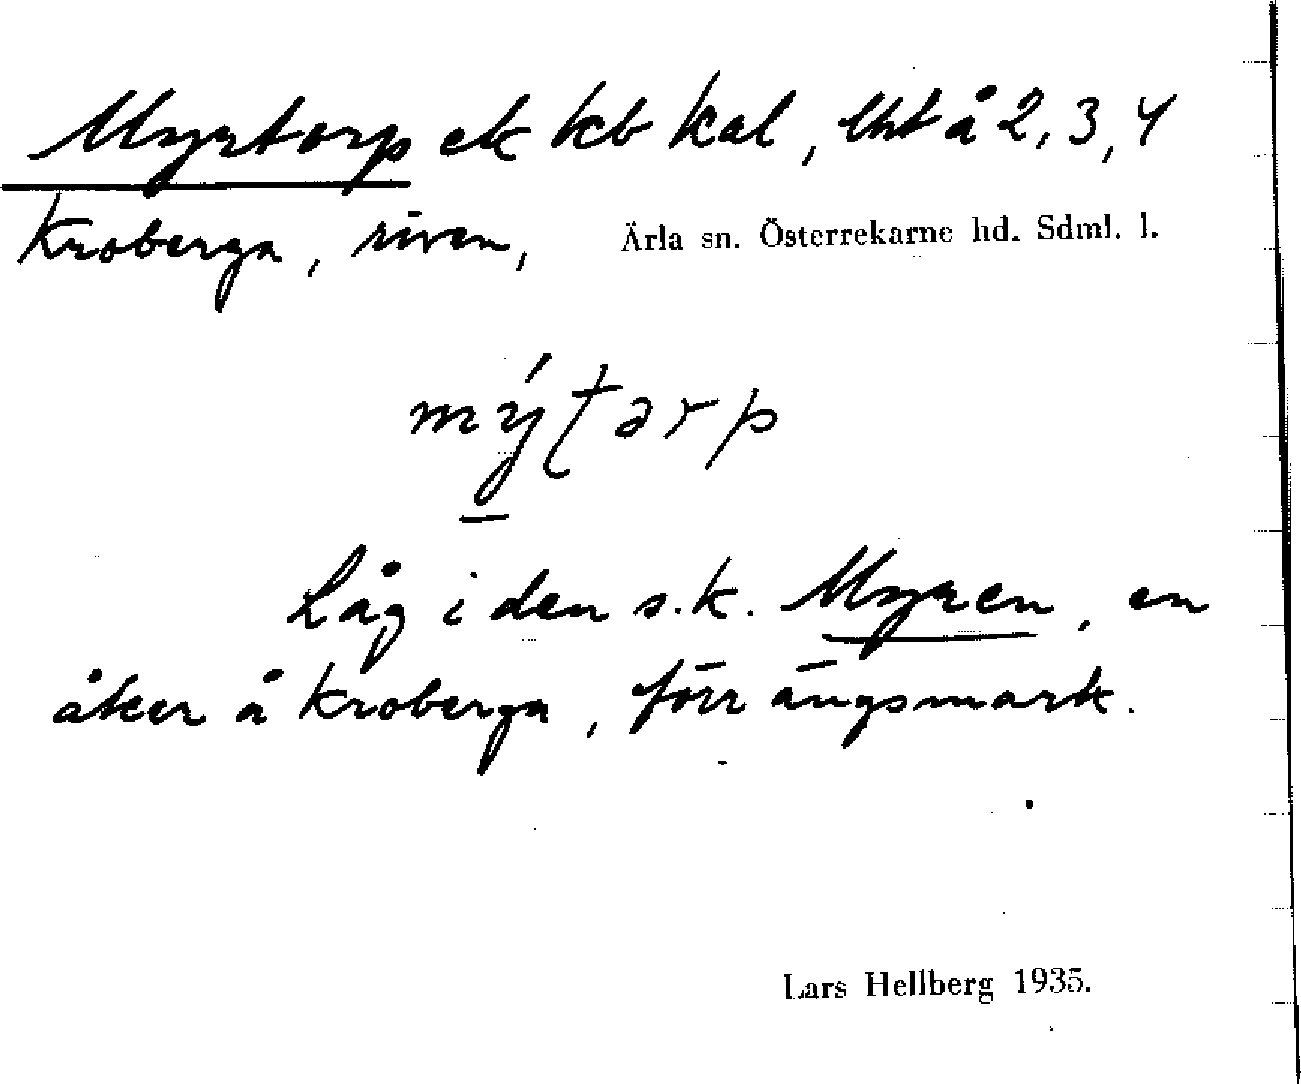 Myrtorp ek kb kal, lht å 2, 3, 4
Kroberga, riven, Ärla sn. Österrekarne hd. Sdml. l.
mýtarp
Låg i den s.k. Myren, en
åker å Kroberga, förr ängsmark.
Lars Hellberg 1935.